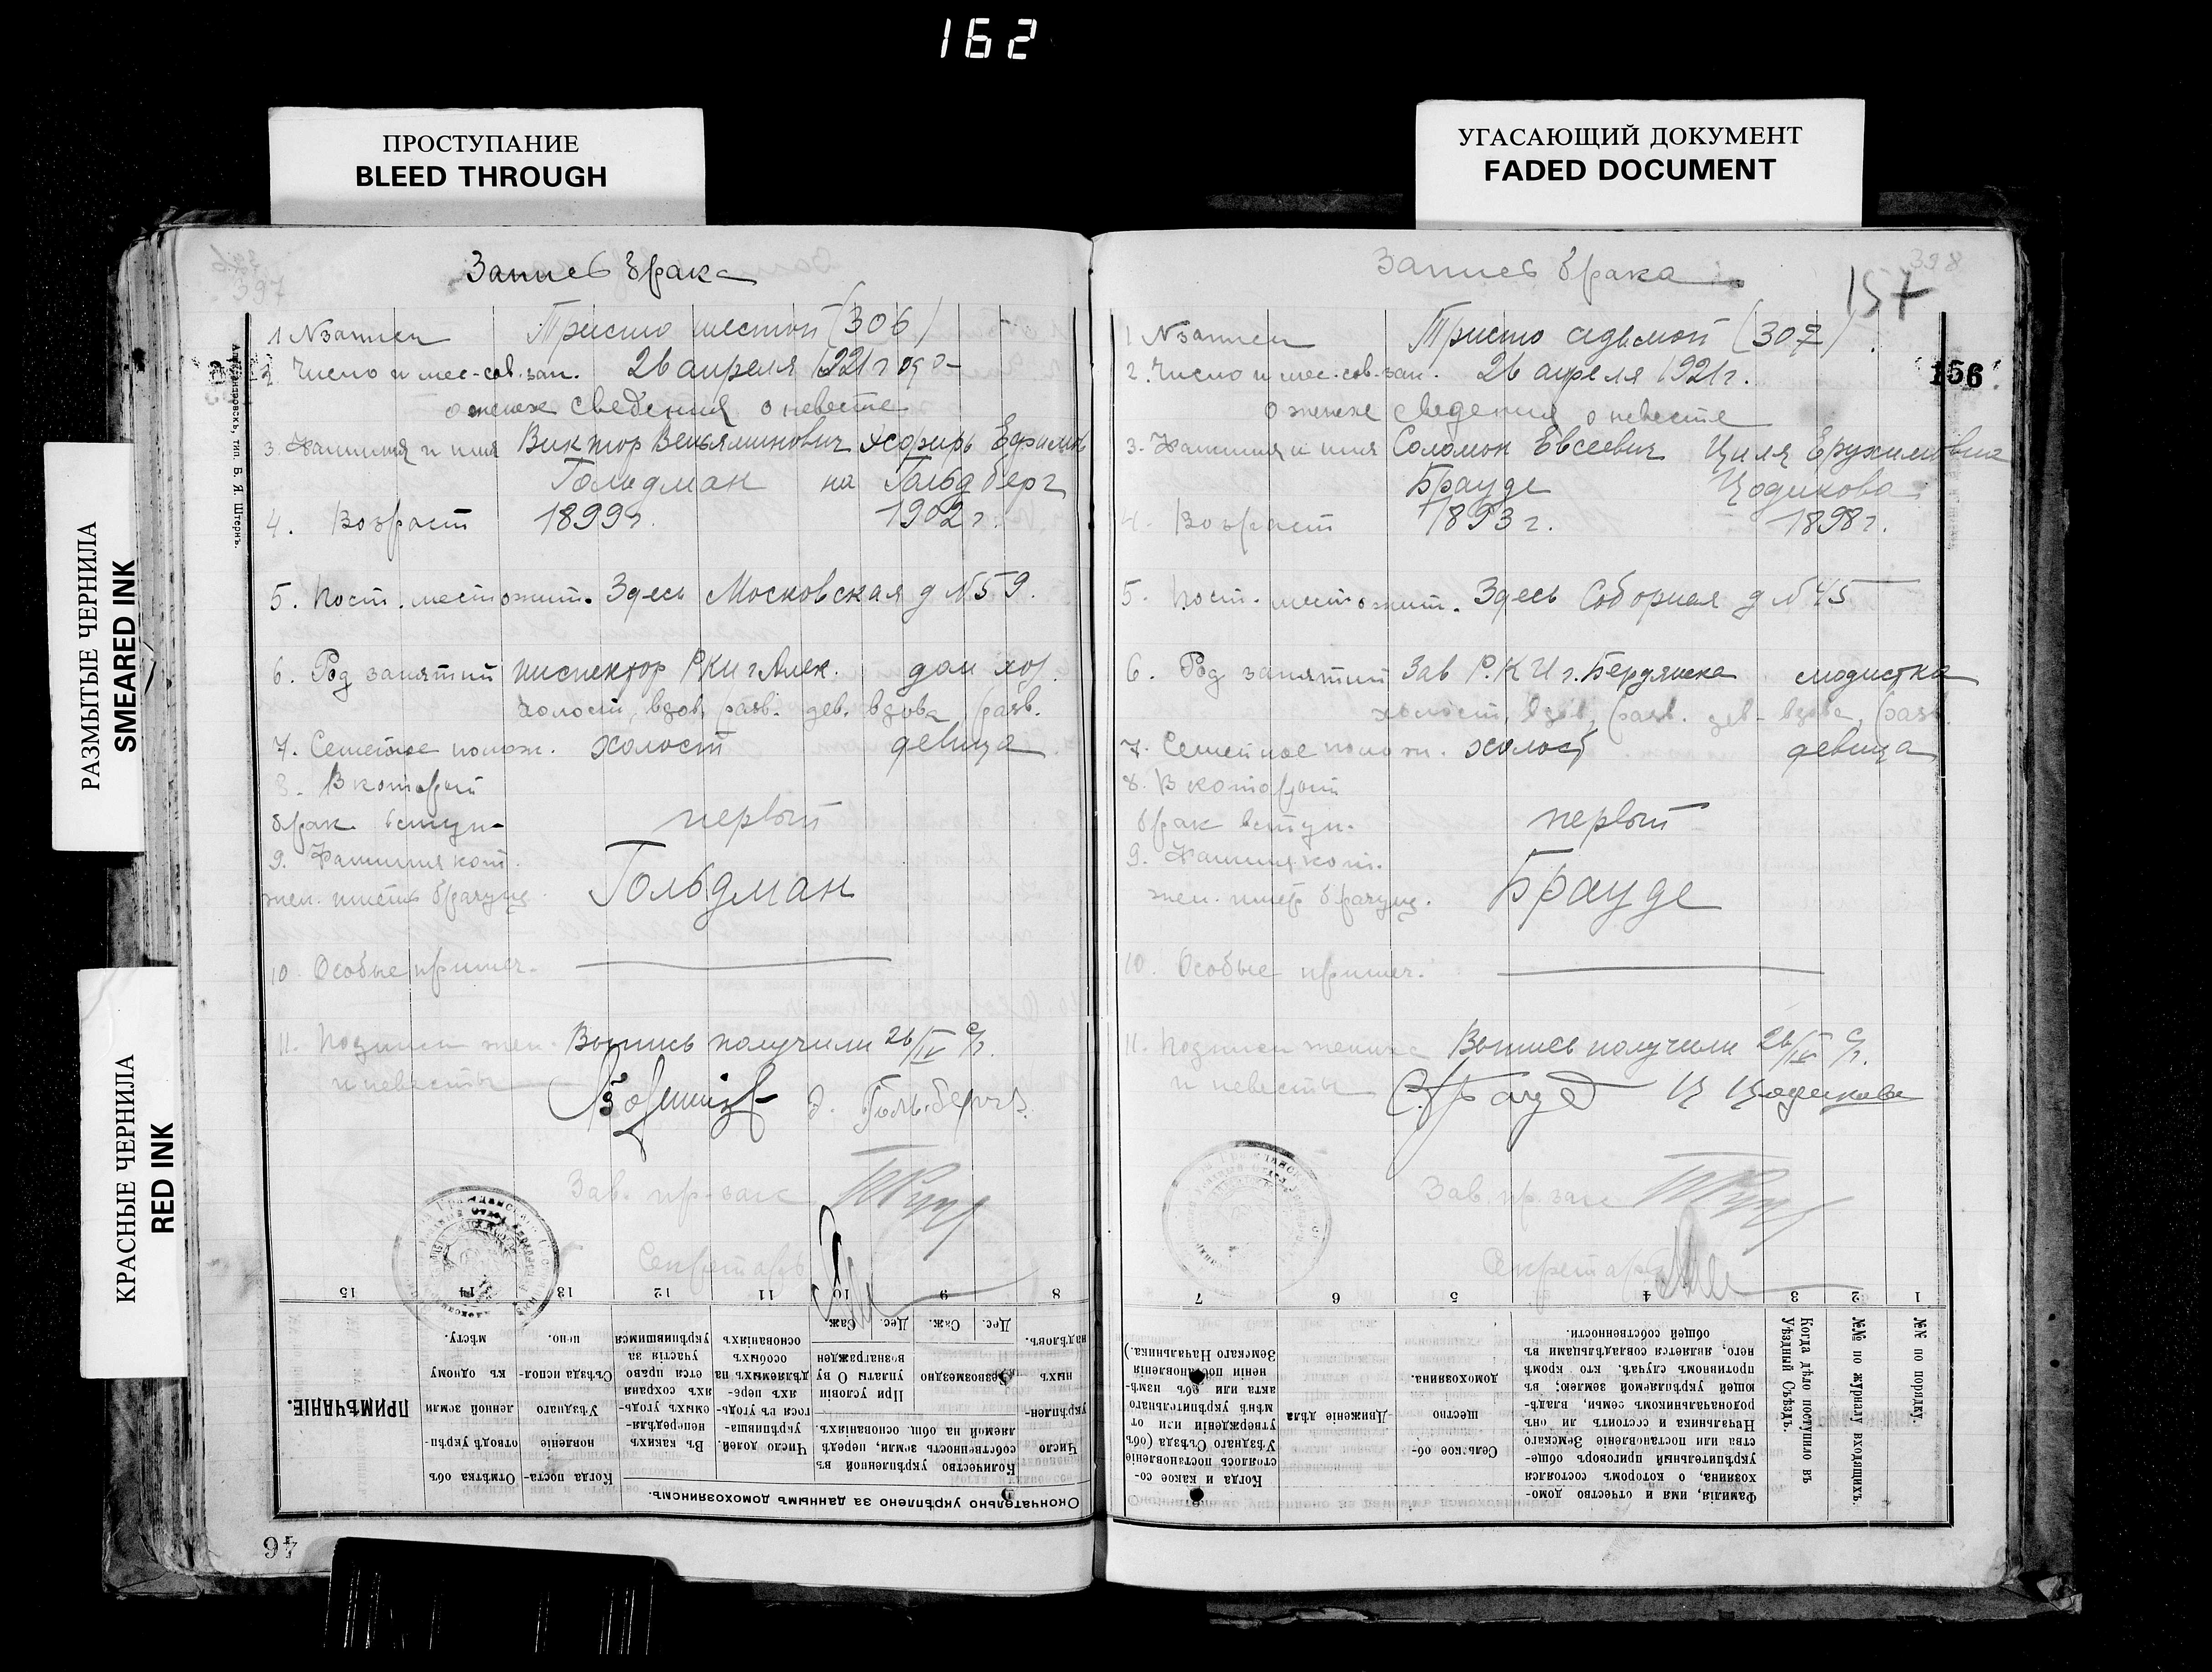 162
ПРОСТУПАНИЕ
BLEED THROUGH
УГАСАЮЩИЙ ДОКУМЕНТ
FADED DOCUMENT
РАЗМЫТЫЕ ЧЕРНИЛА
SMEARED INK
КРАСНЫЕ ЧЕРНИЛА
RED INK
397
Запись брака
1 N записи Тристо шестой (306)
2. Число и мес. сов. зап. 26 апреля 1921 г
о женихе сведения о невесте
3. Фамилия и имя Виктор Веньяминович Ефримов
Гольдман на Гольдберг
4. Возраст 1899 г. 1902 г.
5. Пост. местожит. Здесь Московская д N 59.
6. Род занятий инспектор РКИ г Алек. дом хоз.
холост, вдов, разв. дев. вдова, разв.
7. Семейное полож. холост девица
8. В который
брак вступ. первый
9. Фамилия кот.
жен. имет брачущ. Гольдман
10. Особые примеч.
11. Подписи жен. Выпись получили 26/IV с/г.
и невесты
Зав. пр. зак
Секретарь
Александровскъ, тип. Б. Я. Штернъ.
15 14 13 12 11 10 9 8
Окончательно укрѣплено за даннымъ домохозяиномъ.
Число укрѣпленныхъ надѣловъ.
Количество укрѣпленной въ собственность земли, передѣляемой на общ. основаніяхъ.
Безвозмездно
При условіи уплаты О ву вознагражден
Дес. Саж. Дес. Саж.
Число долей, укрѣпившагося въ угодьяхъ передѣляемыхъ на особыхъ основаніяхъ
Въ какихъ непередѣляемыхъ угодьяхъ сохраняется право участія за укрѣпившимся
Когда постановленіе Уѣзднаго Съѣзда исполнено.
Отмѣтка объ отводѣ укрѣпленной земли къ одному мѣсту.
ПРИМѢЧАНІЕ.
46
398
157
156
Запись брака
1 N записи Тристо седьмой (307)
2. Число и мес. сов. зап. 26 апреля 1921 г.
о женихе сведения о невесте
3. Фамилия и имя Соломон Евсеевич Циля Ерухимовна
Брауде Цодикова
4. Возраст 1893 г. 1898 г.
5. Пост. местожит. Здесь Соборная д N 45
6. Род занятий Зав Р.К.И г. Бердянска модистка
холост, вдов, разв. дев. вдова, разв.
7. Семейное полож. холост девица
8. В который
брак вступ. первый
9. Фамилия кот.
жен. имет брачущ. Брауде
10. Особые примеч.
11. Подписи жениха Выпись получили 26/IV с/г.
и невесты С. Брауде Ц Цодикова
Зав. пр. зак
Секретарь
7 6 5 4 3 2 1
№№ по порядку.
№№ по журналу входящихъ.
Когда дѣло поступило въ Уѣздный Съѣздъ.
Фамилія, имя и отчество домохозяина, о которомъ состоялся укрѣпительный приговоръ общества или постановленіе Земскаго Начальника и состоитъ ли онъ родоначальникомъ семьи, владѣющей укрѣпляемой землею; въ противномъ случаѣ. кто кромѣ него, является совладѣльцами въ общей собственности.
Сельское общество домохозяина.
Движеніе дѣла
Когда и какое состоялось постановленіе Уѣзднаго Съѣзда (объ утвержденіи или отмѣнѣ укрѣпительнаго акта или объ измѣненіи постановленія Земскаго Начальника.)